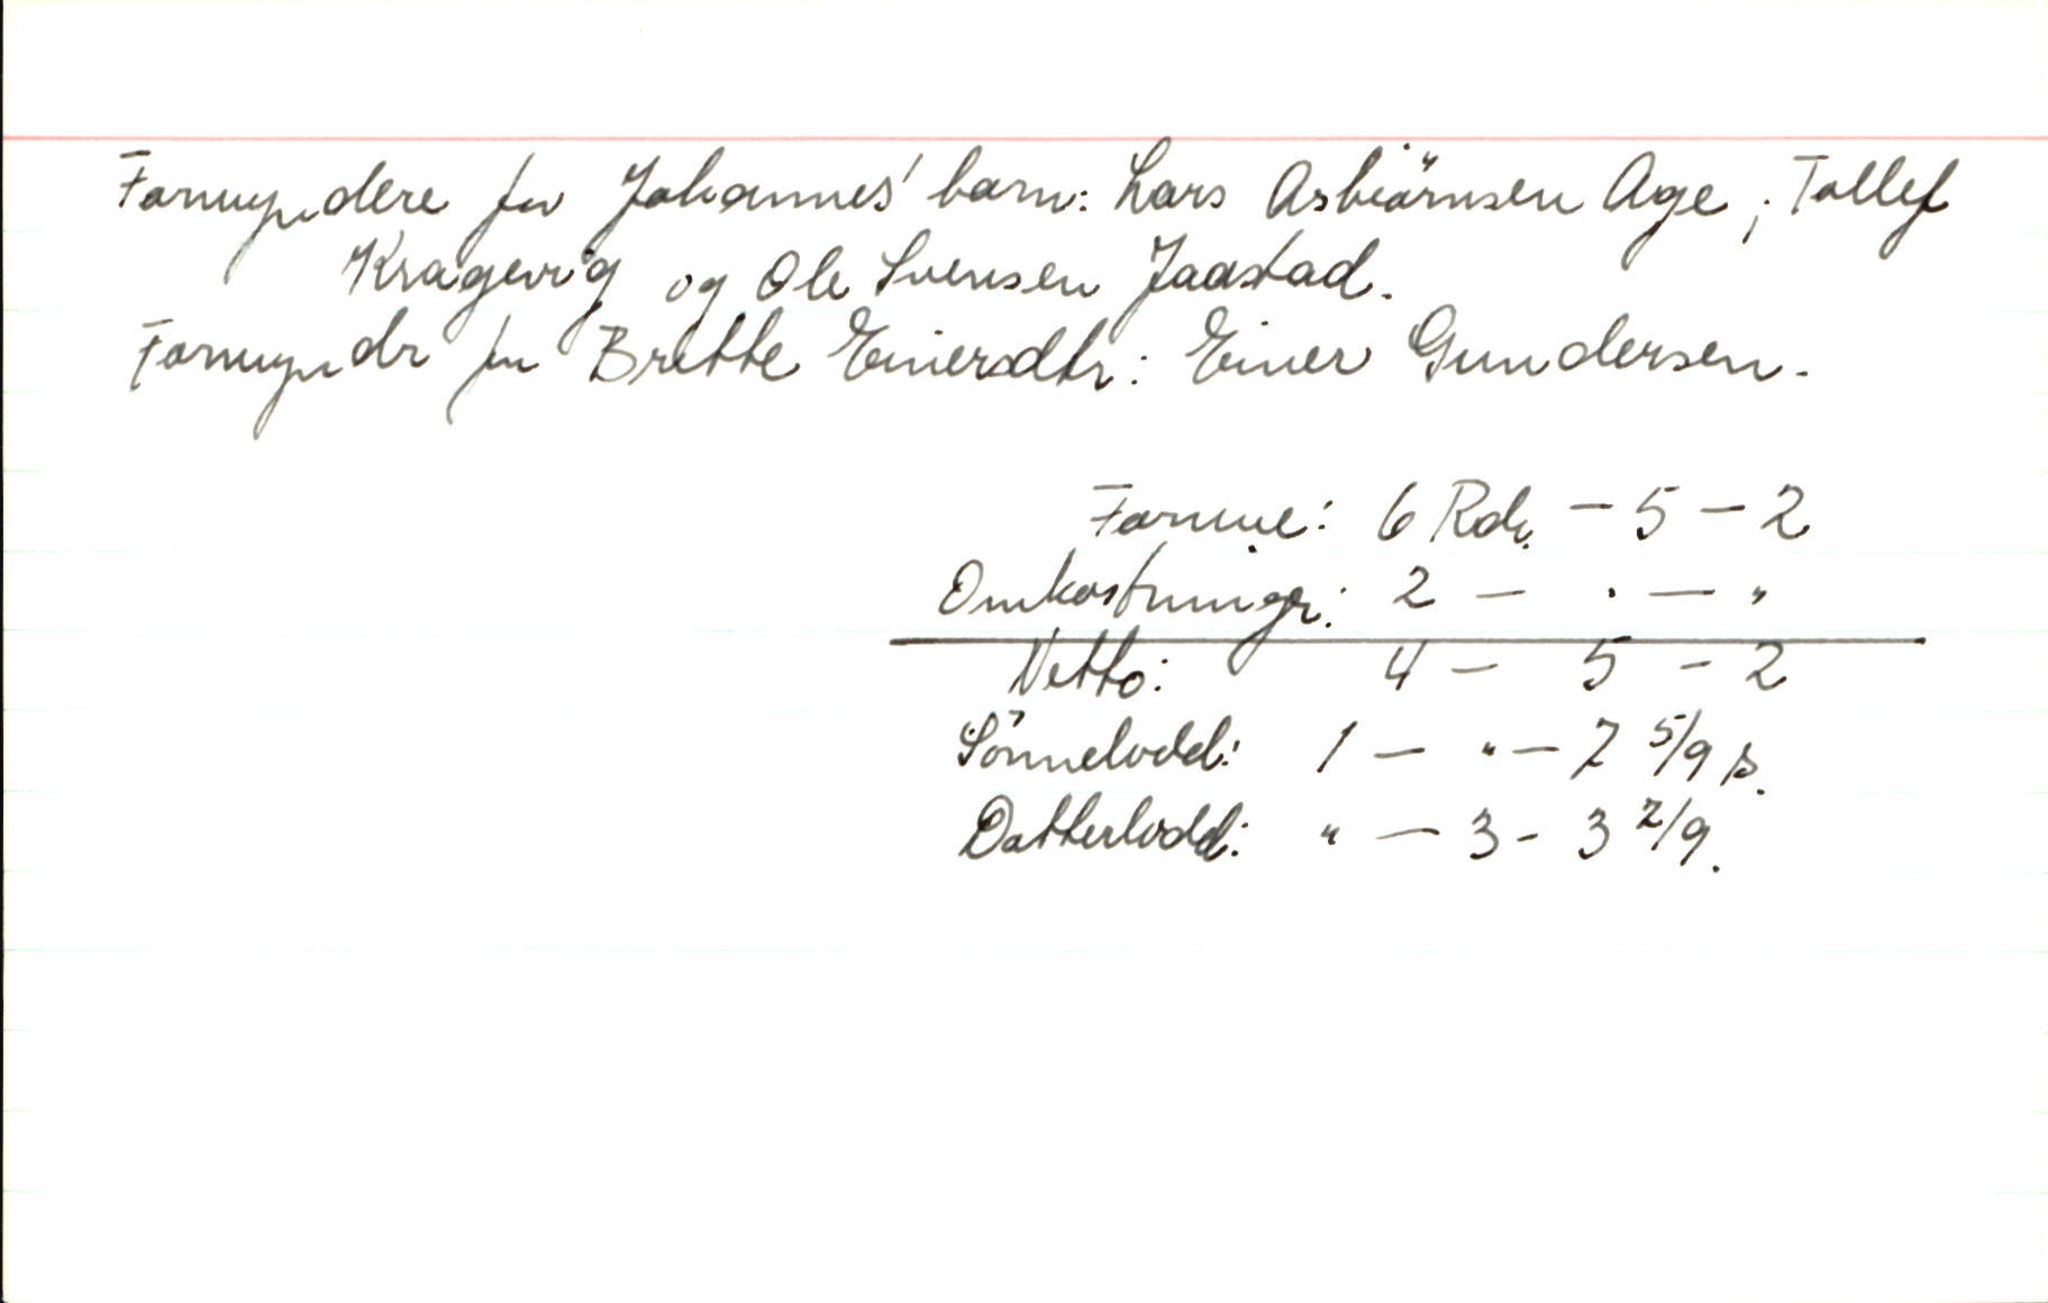 Formyndere for Johannes' barn: Lars Asbiörnsen Age, Tollef
Kragevig og Ole Svensen Jaastad.
Formyndr for Britte Einersdtr: Einer Gundersen.
Formue: 6 Rdr. - 5 - 2
Omkostningr: 2 - . - "
Netto: 4 - 5 - 2
Sönnelodd: 1 - " - 7 5/9 s.
Datterlodd: " - 3 - 3 7/9.